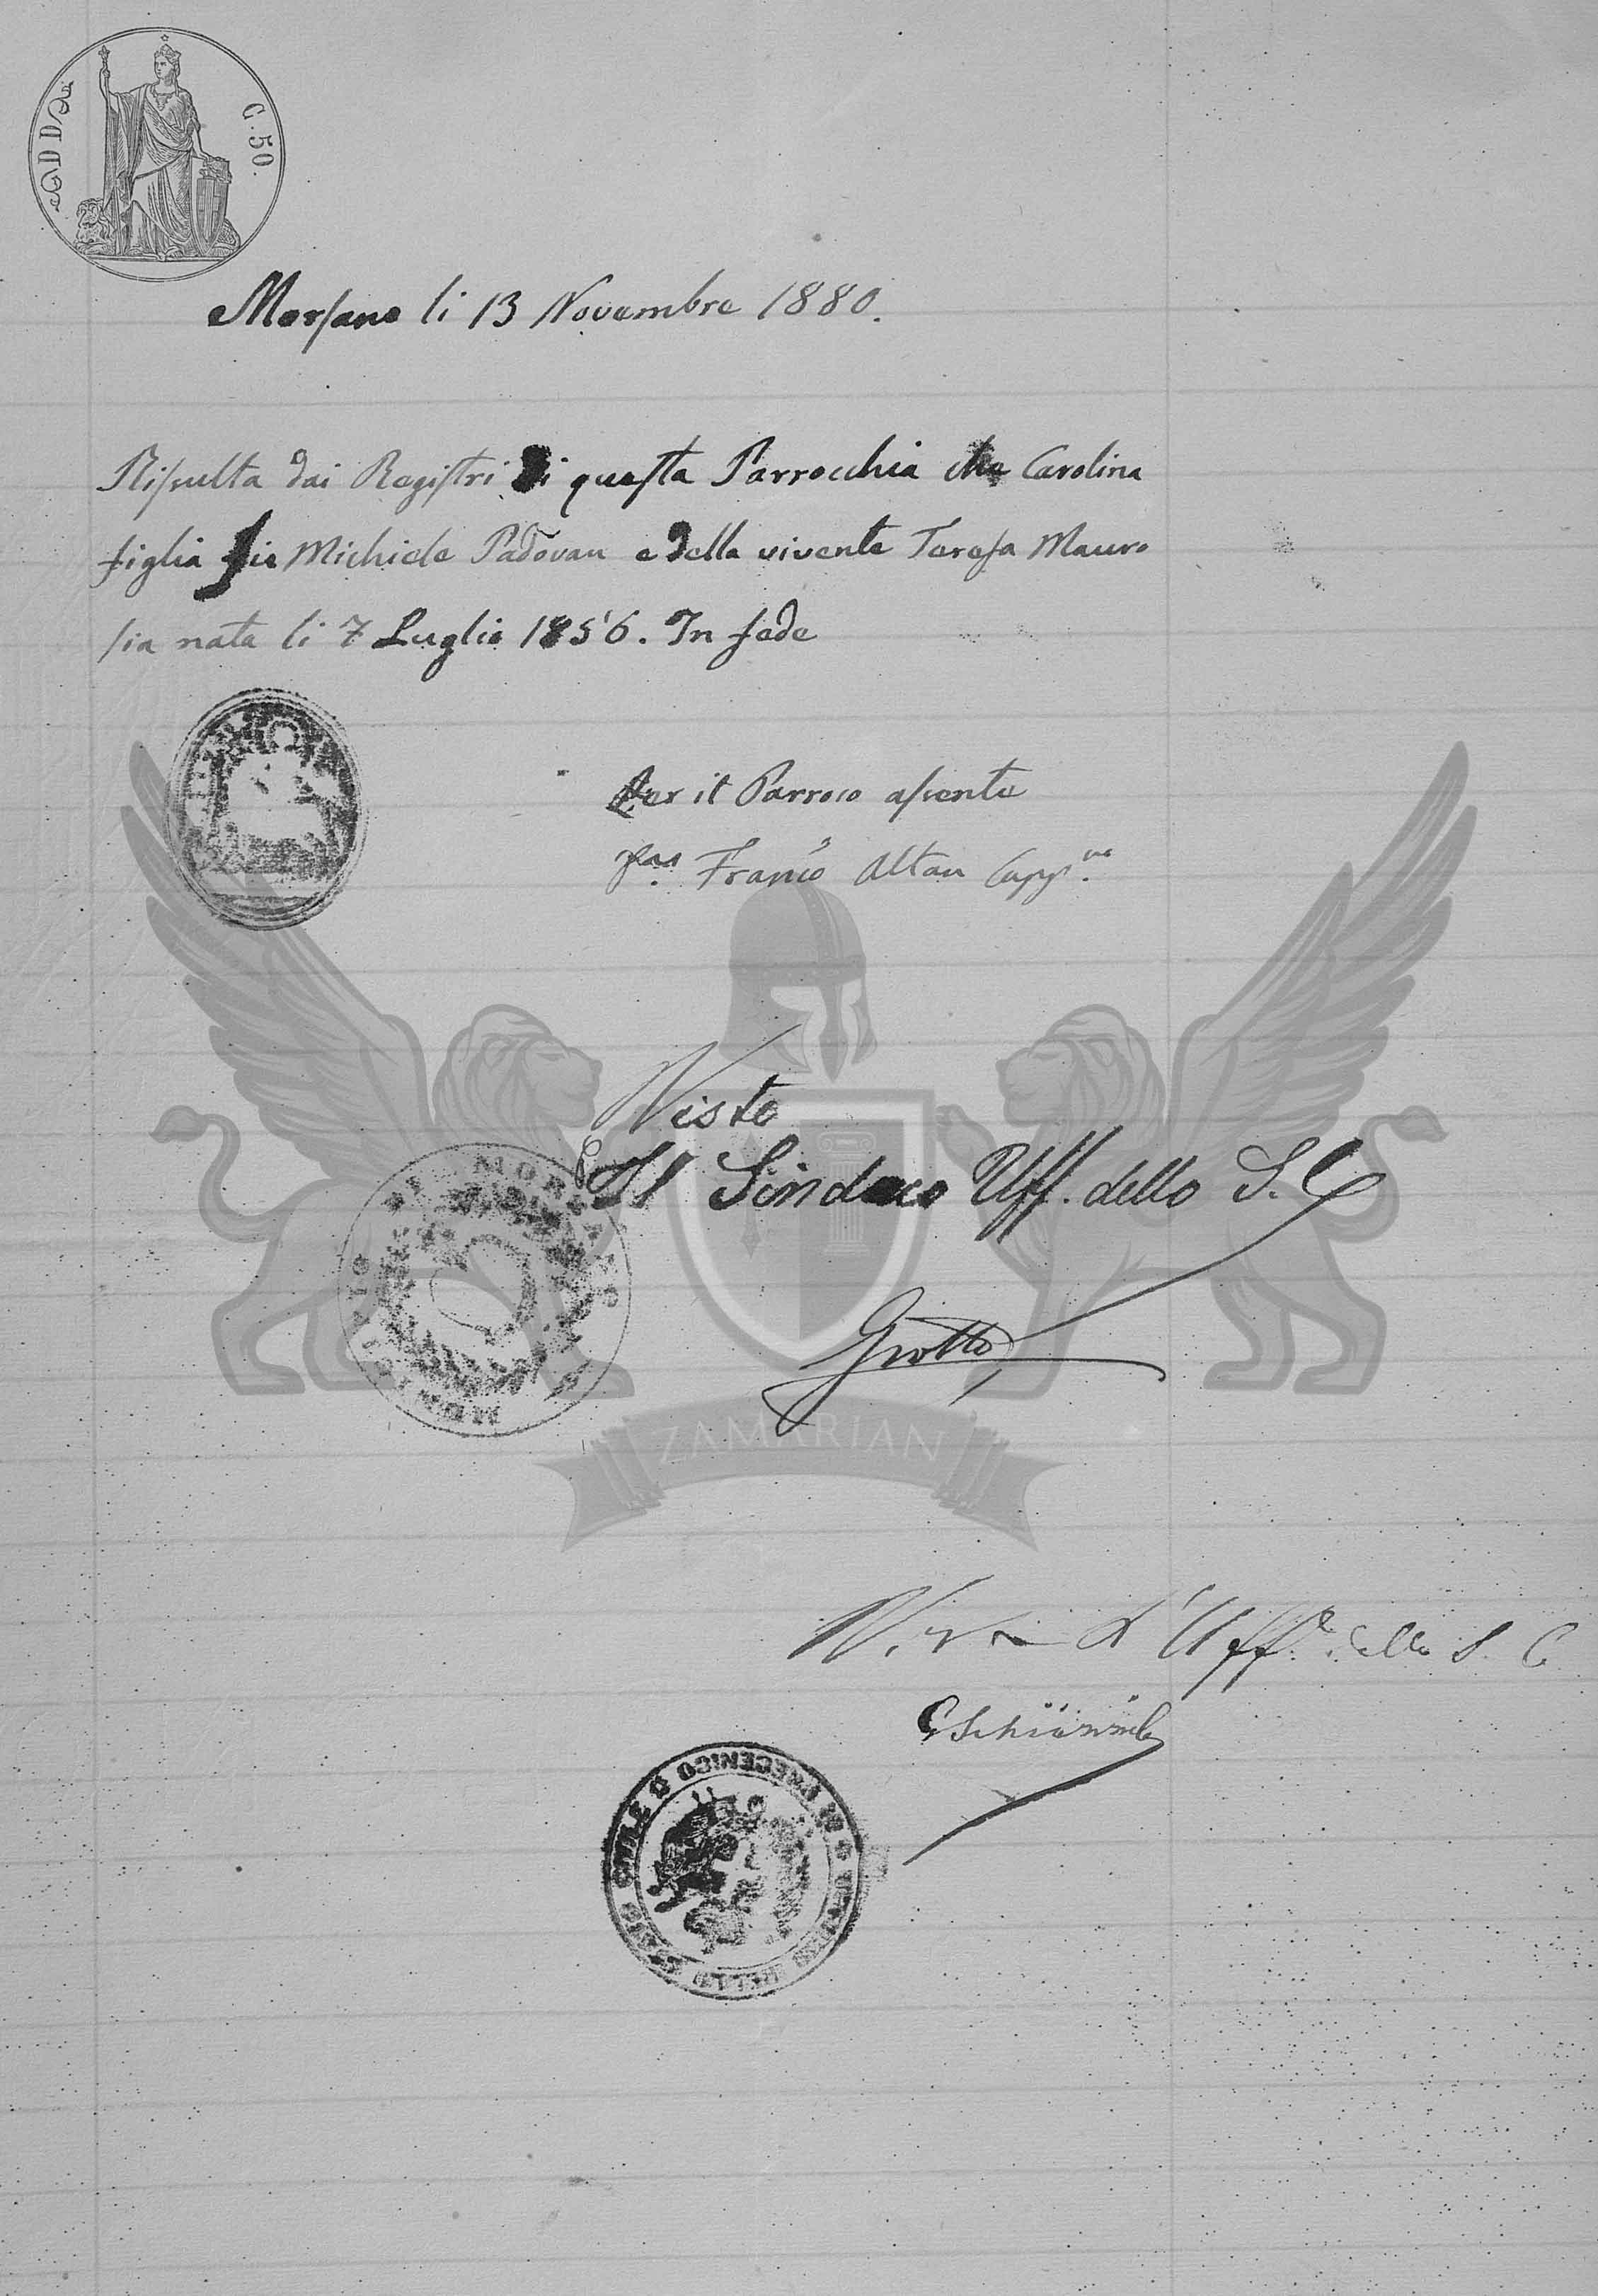 C. 50.
Morsano li 13 Novembre 1880.
Risulta dai Registri di questa Parrocchia che Carolina
figlia fu Michiele Padovan e della vivente Teresa Mauro
sia nata li 7 Luglio 1856. In fede
Per il Parroco assente
Franco Altan Capp.no
Visto
Il Sindaco Uff. dello S. C
Grotto
DI MORSANO
MUNICIPIO
ZAMARIAN
V. L'Uff.le dello S. C.
CIVILE DI PRECENICO
DELLO STATO